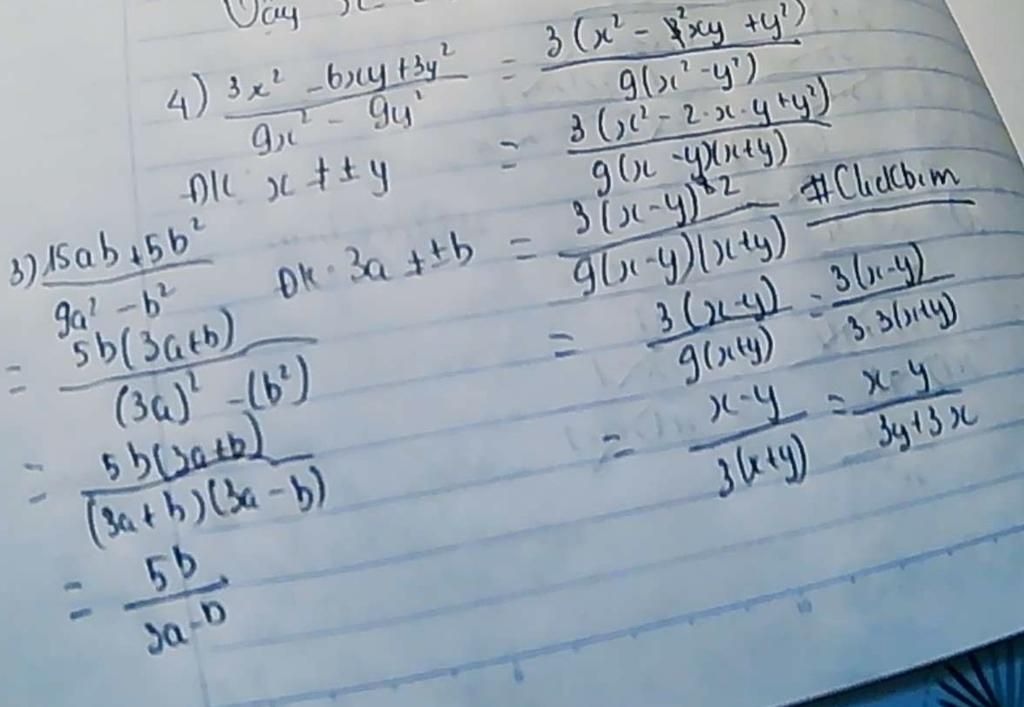 Vậy x
4) \frac{3x^2 - 6xy + 3y^2}{9x^2 - 9y^2} = \frac{3(x^2 - 2xy + y^2)}{9(x^2 - y^2)}
ĐK: x ≠ ± y = \frac{3(x^2 - 2·x·y + y^2)}{9(x - y)(x + y)}
= \frac{3(x-y)^2}{9(x-y)(x+y)} #Clickbim
= \frac{3(x-y)}{9(x+y)} = \frac{3(x-y)}{3.3(x+y)}
= \frac{x-y}{3(x+y)} = \frac{x-y}{3y+3x}
3) \frac{15ab + 5b^2}{9a^2 - b^2} ĐK: 3a ≠ ± b
= \frac{5b(3a+b)}{(3a)^2 - (b^2)}
= \frac{5b(3a+b)}{(3a+b)(3a-b)}
= \frac{5b}{3a-b}